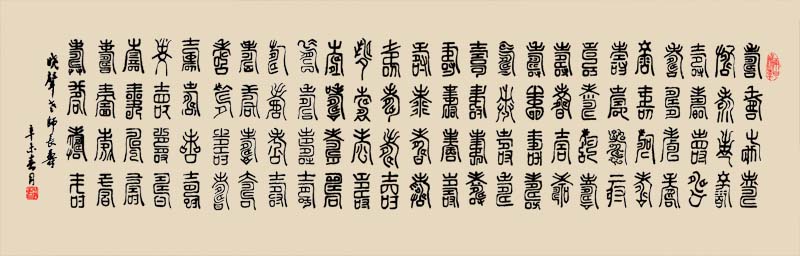 壽壽壽壽
壽壽壽壽
壽壽壽壽
壽壽壽壽
壽壽壽壽
壽壽壽壽
壽壽壽壽
壽壽壽壽
壽壽壽壽
壽壽壽壽
壽壽壽壽
壽壽壽壽
壽壽壽壽
壽壽壽壽
壽壽壽壽
壽壽壽壽
壽壽壽壽
壽壽壽壽
壽壽壽壽
壽壽壽壽
壽壽壽壽
壽壽壽壽
壽壽壽壽
壽壽壽壽
壽壽壽壽
曉聲老師長壽
辛未春月